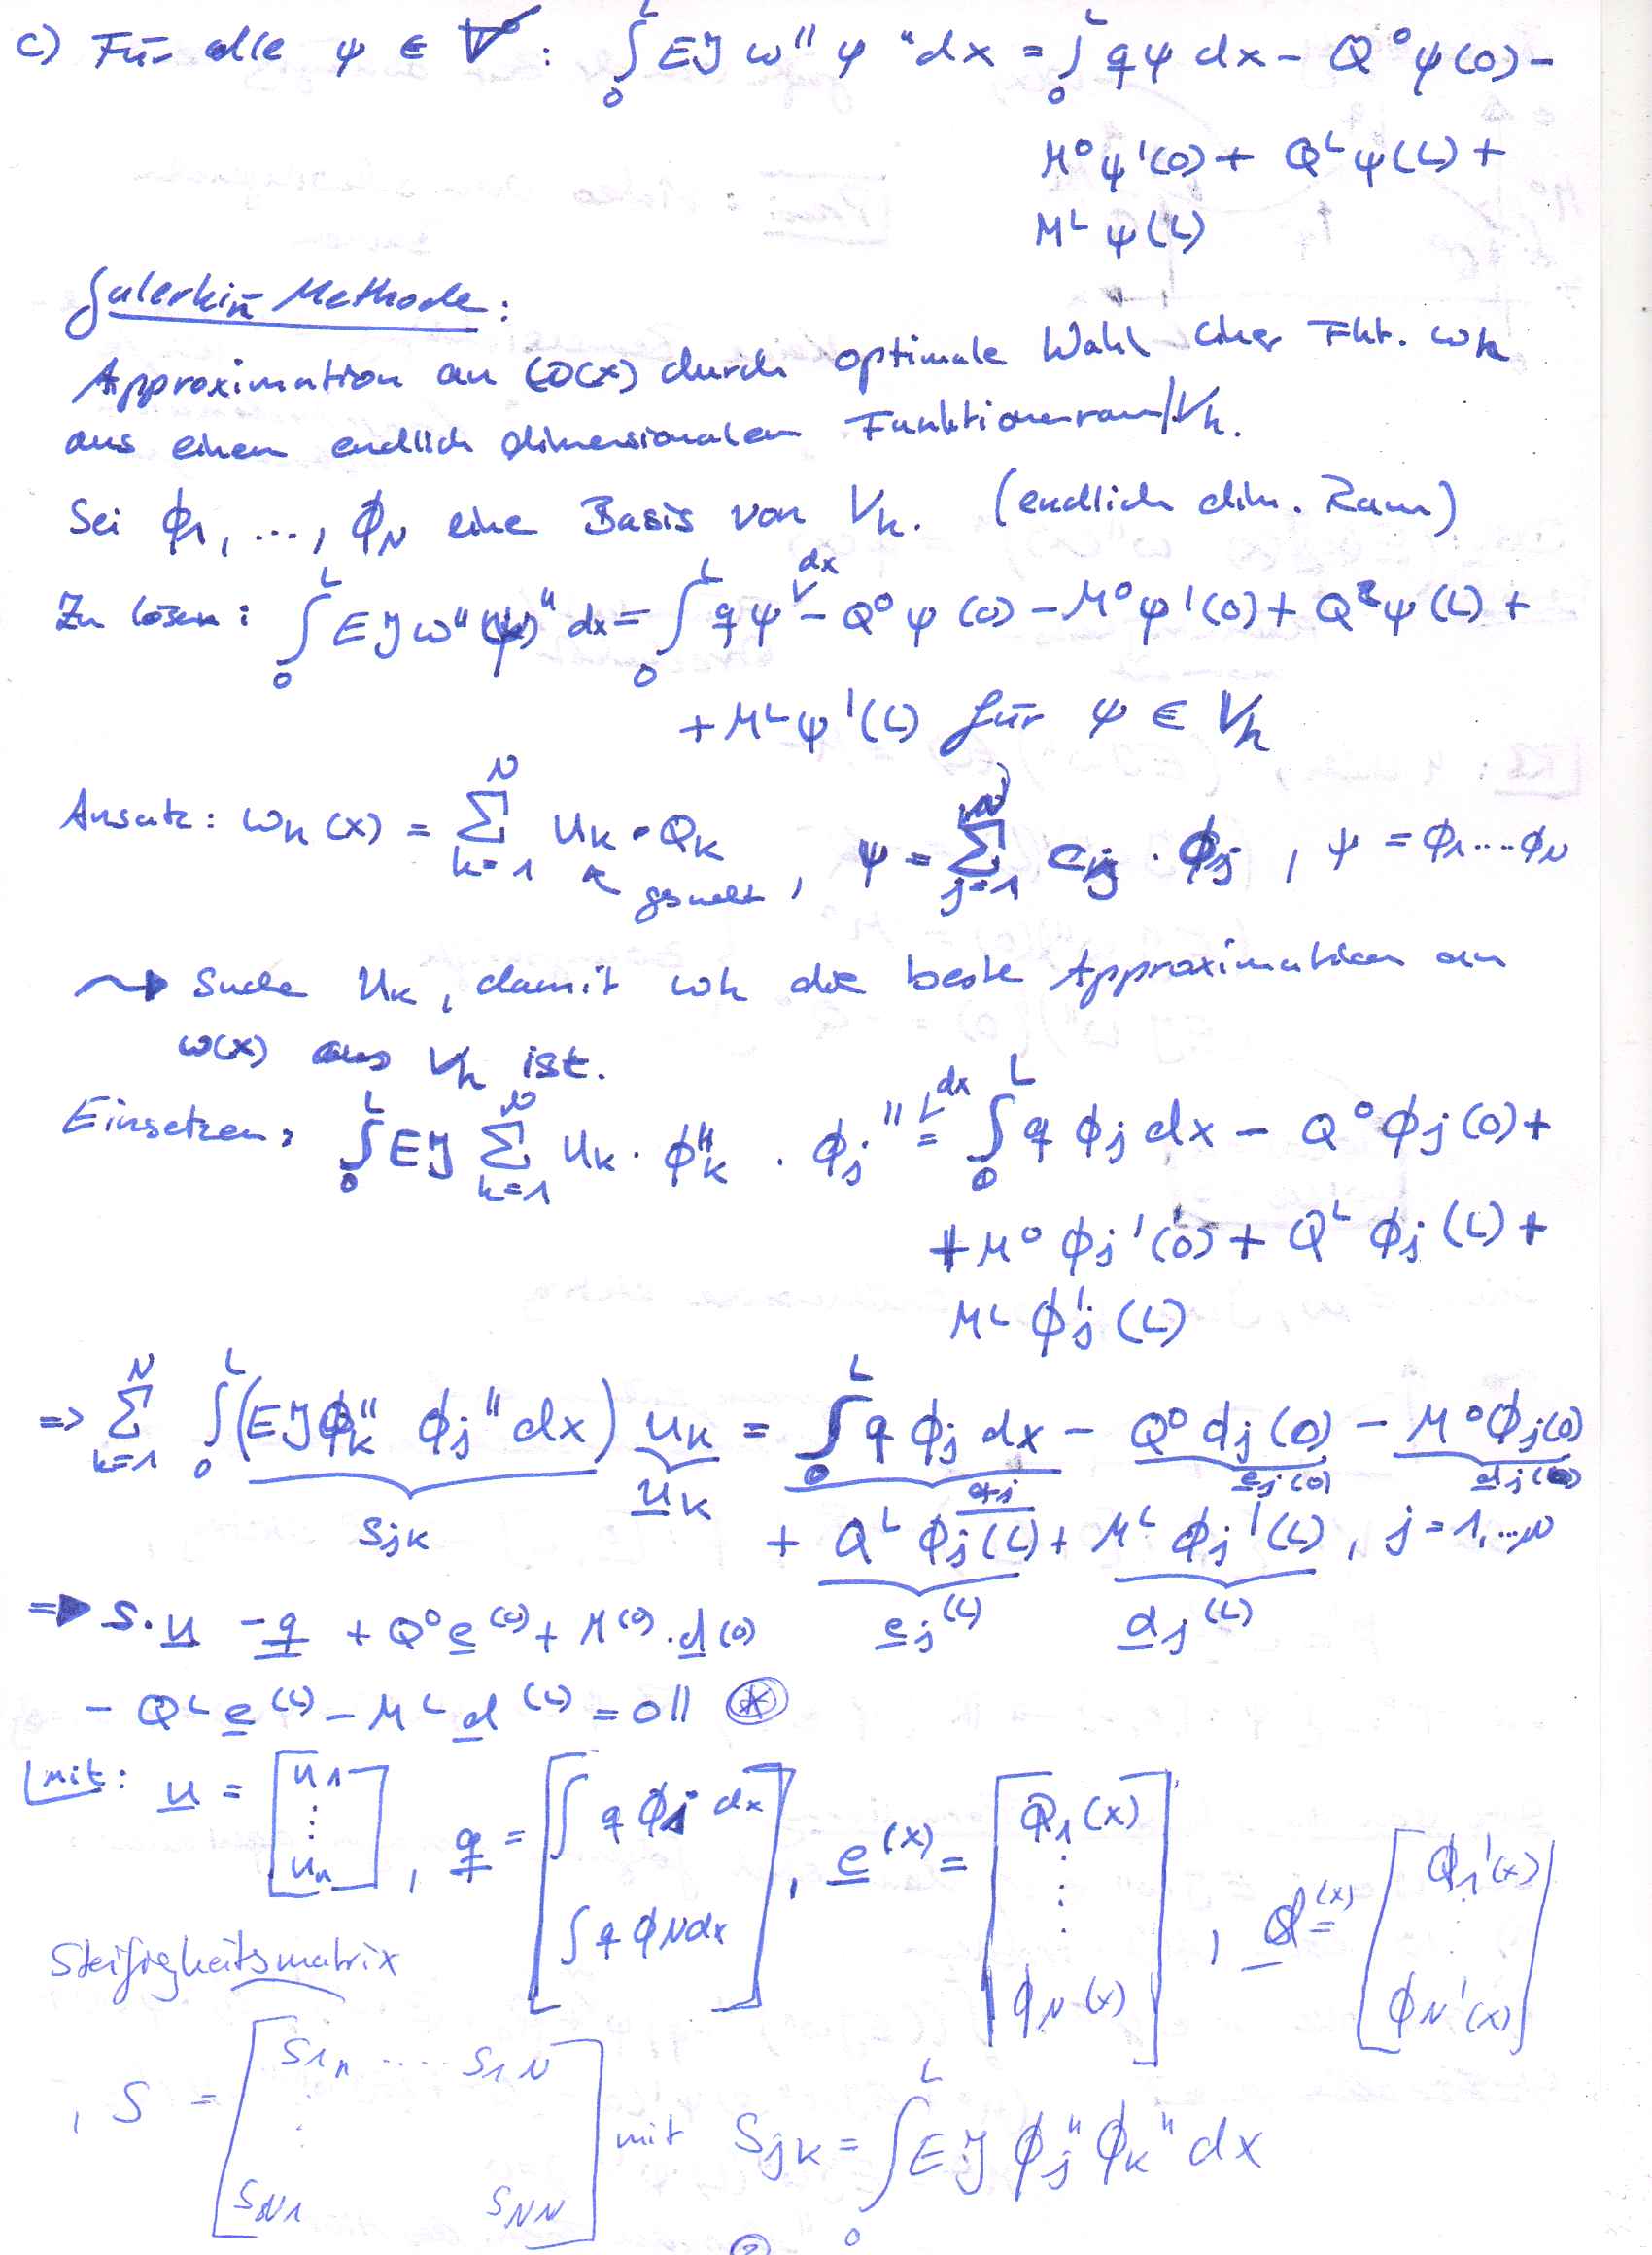 c) Für alle ψ ∈ V⁰ : ∫₀ᴸ EJ ω'' ψ'' dx = ∫₀ᴸ qψ dx - Q⁰ ψ(0) -
M⁰ ψ'(0) + Qᴸ ψ(L) +
Mᴸ ψ(L)
Galerkin Methode:
Approximation an ω(x) durch optimale Wahl einer Fkt. ωh
aus einem endlich dimensionalen Funktionenraum Vh.
Sei ϕ1, ..., ϕN eine Basis von Vh. (endlich dim. Raum)
Zu lösen: ∫₀ᴸ EJ ω'' (ψ)'' dx = ∫₀ᴸ qψ dx - Q⁰ ψ(0) - M⁰ ψ'(0) + Qᴸ ψ(L) +
+ Mᴸ ψ'(L) für ψ ∈ Vh
Ansatz: ωh(x) = ∑ₖ₌₁ᴺ uk · Qk , ψ = ∑ⱼ₌₁ᴺ cj · ϕj , ψ = ϕ1 .... ϕN
gesucht
⇝ Suche uk, damit ωh die beste Approximation an
ω(x) aus Vh ist.
Einsetzen: ∫₀ᴸ EJ ∑ₖ₌₁ᴺ uk · ϕk'' · ϕj'' dx = ∫₀ᴸ q ϕj dx - Q⁰ ϕj(0) +
+ M⁰ ϕj'(0) + Qᴸ ϕj(L) +
Mᴸ ϕj'(L)
=> ∑ₖ₌₁ᴺ ∫₀ᴸ (EJ ϕk'' ϕj'' dx) uk = ∫₀ᴸ q ϕj dx - Q⁰ dj(0) - M⁰ ϕj(0)
sjk uk qj ej(0) dj(0)
+ Qᴸ ϕj(L) + Mᴸ ϕj'(L) , j = 1, ... N
ej(L) dj(L)
=> S · u - q + Q⁰ e(0) + M(0) · d(0)
- Qᴸ e(L) - Mᴸ d(L) = 0 || ⊛
mit: u = [u1 ⋮ un] , q = [∫ q ϕ1 dx ∫ q ϕN dx] , e(x) = [Q1(x) ⋮ ϕN(x)] , d(x) = [Q1'(x) ⋮ ϕN'(x)]
Steifigkeitsmatrix
, S = [S11 ..... S1N ⋮ SN1 SNN] mit Sjk = ∫₀ᴸ EJ ϕj'' ϕk'' dx